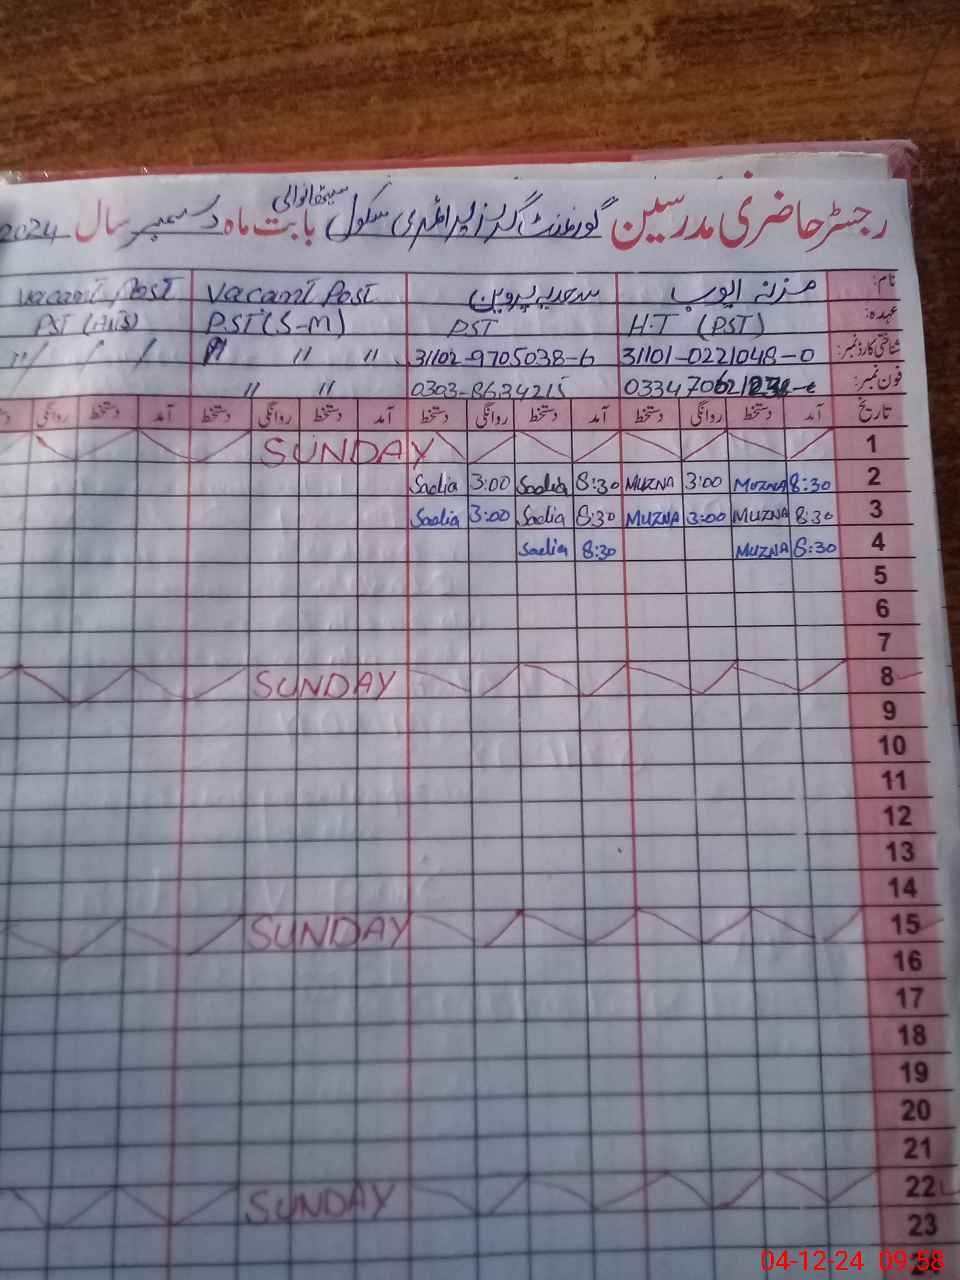 رجسٹر حاضری مدرسین گورنمنٹ گرلز پرائمری سکول بابت ماہ دسمبر سال 2024
نام: مزنہ ایوب سعدیہ پروین Vacant Post Vacant Post
عہدہ: H.T (PST) PST PST (S-M) PST
شناختی کارڈ نمبر: 31101-0221048-0 31102-9705038-6 " " " "
فون نمبر: 0303-8634215 " "
تاریخ آمد دستخط روانگی دستخط آمد دستخط روانگی دستخط آمد دستخط روانگی دستخط آمد دستخط روانگی
1 SUNDAY
2 8:30 MUZNA 3:00 MUZNA 8:30 Sadia 3:00 Sadia
3 8:30 MUZNA 3:00 MUZNA 8:30 Sadia 3:00 Sadia
4 8:30 MUZNA 8:30 Sadia
5
6
7
8 SUNDAY
9
10
11
12
13
14
15 SUNDAY
16
17
18
19
20
21
22 SUNDAY
23
04-12-24 09:58